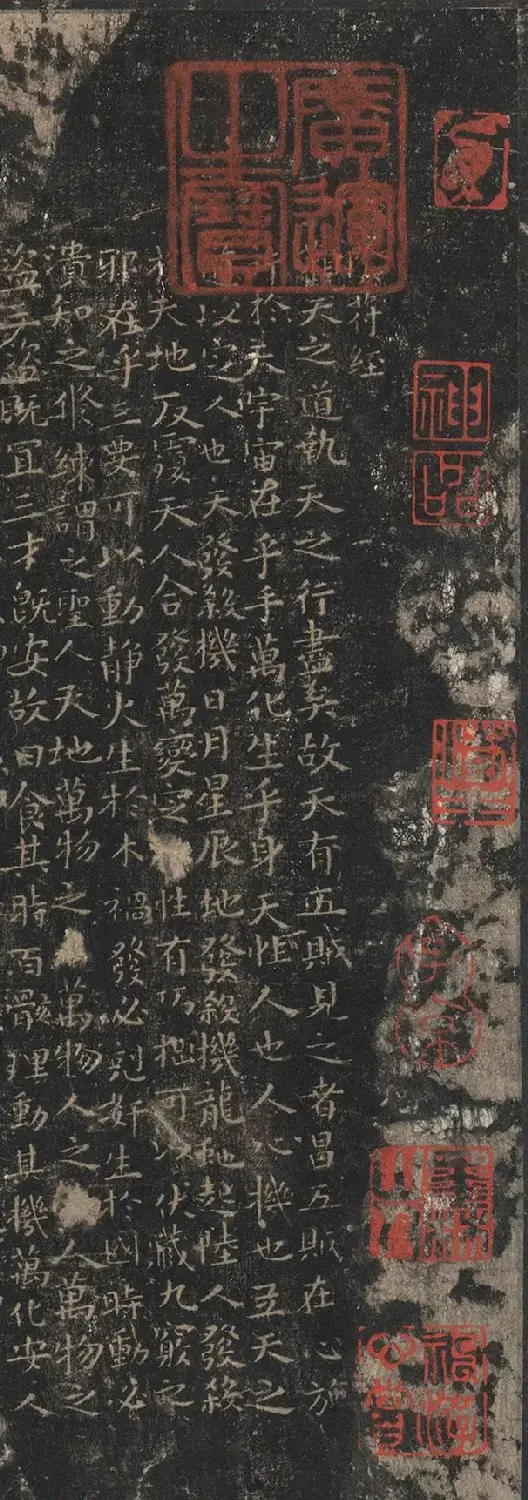 神品
子京
墨林山人
廣運之寶
符經
天之道執天之行盡矣故天有五賊見之者昌五賊在心施
於天宇宙在乎手萬化生乎身天性人也人心機也立天之
以定人也天發殺機日月星辰地發殺機龍虵起陸人發殺
天地反覆天人合發萬變定性有巧拙可以伏藏九竅之
邪在乎三要可以動靜火生於木禍發必剋奸生於國時動必
潰知之修練謂之聖人天地萬物之萬物人之人萬物之
盜三盜既宜三才既安故曰食其時百骸理動其機萬化安人